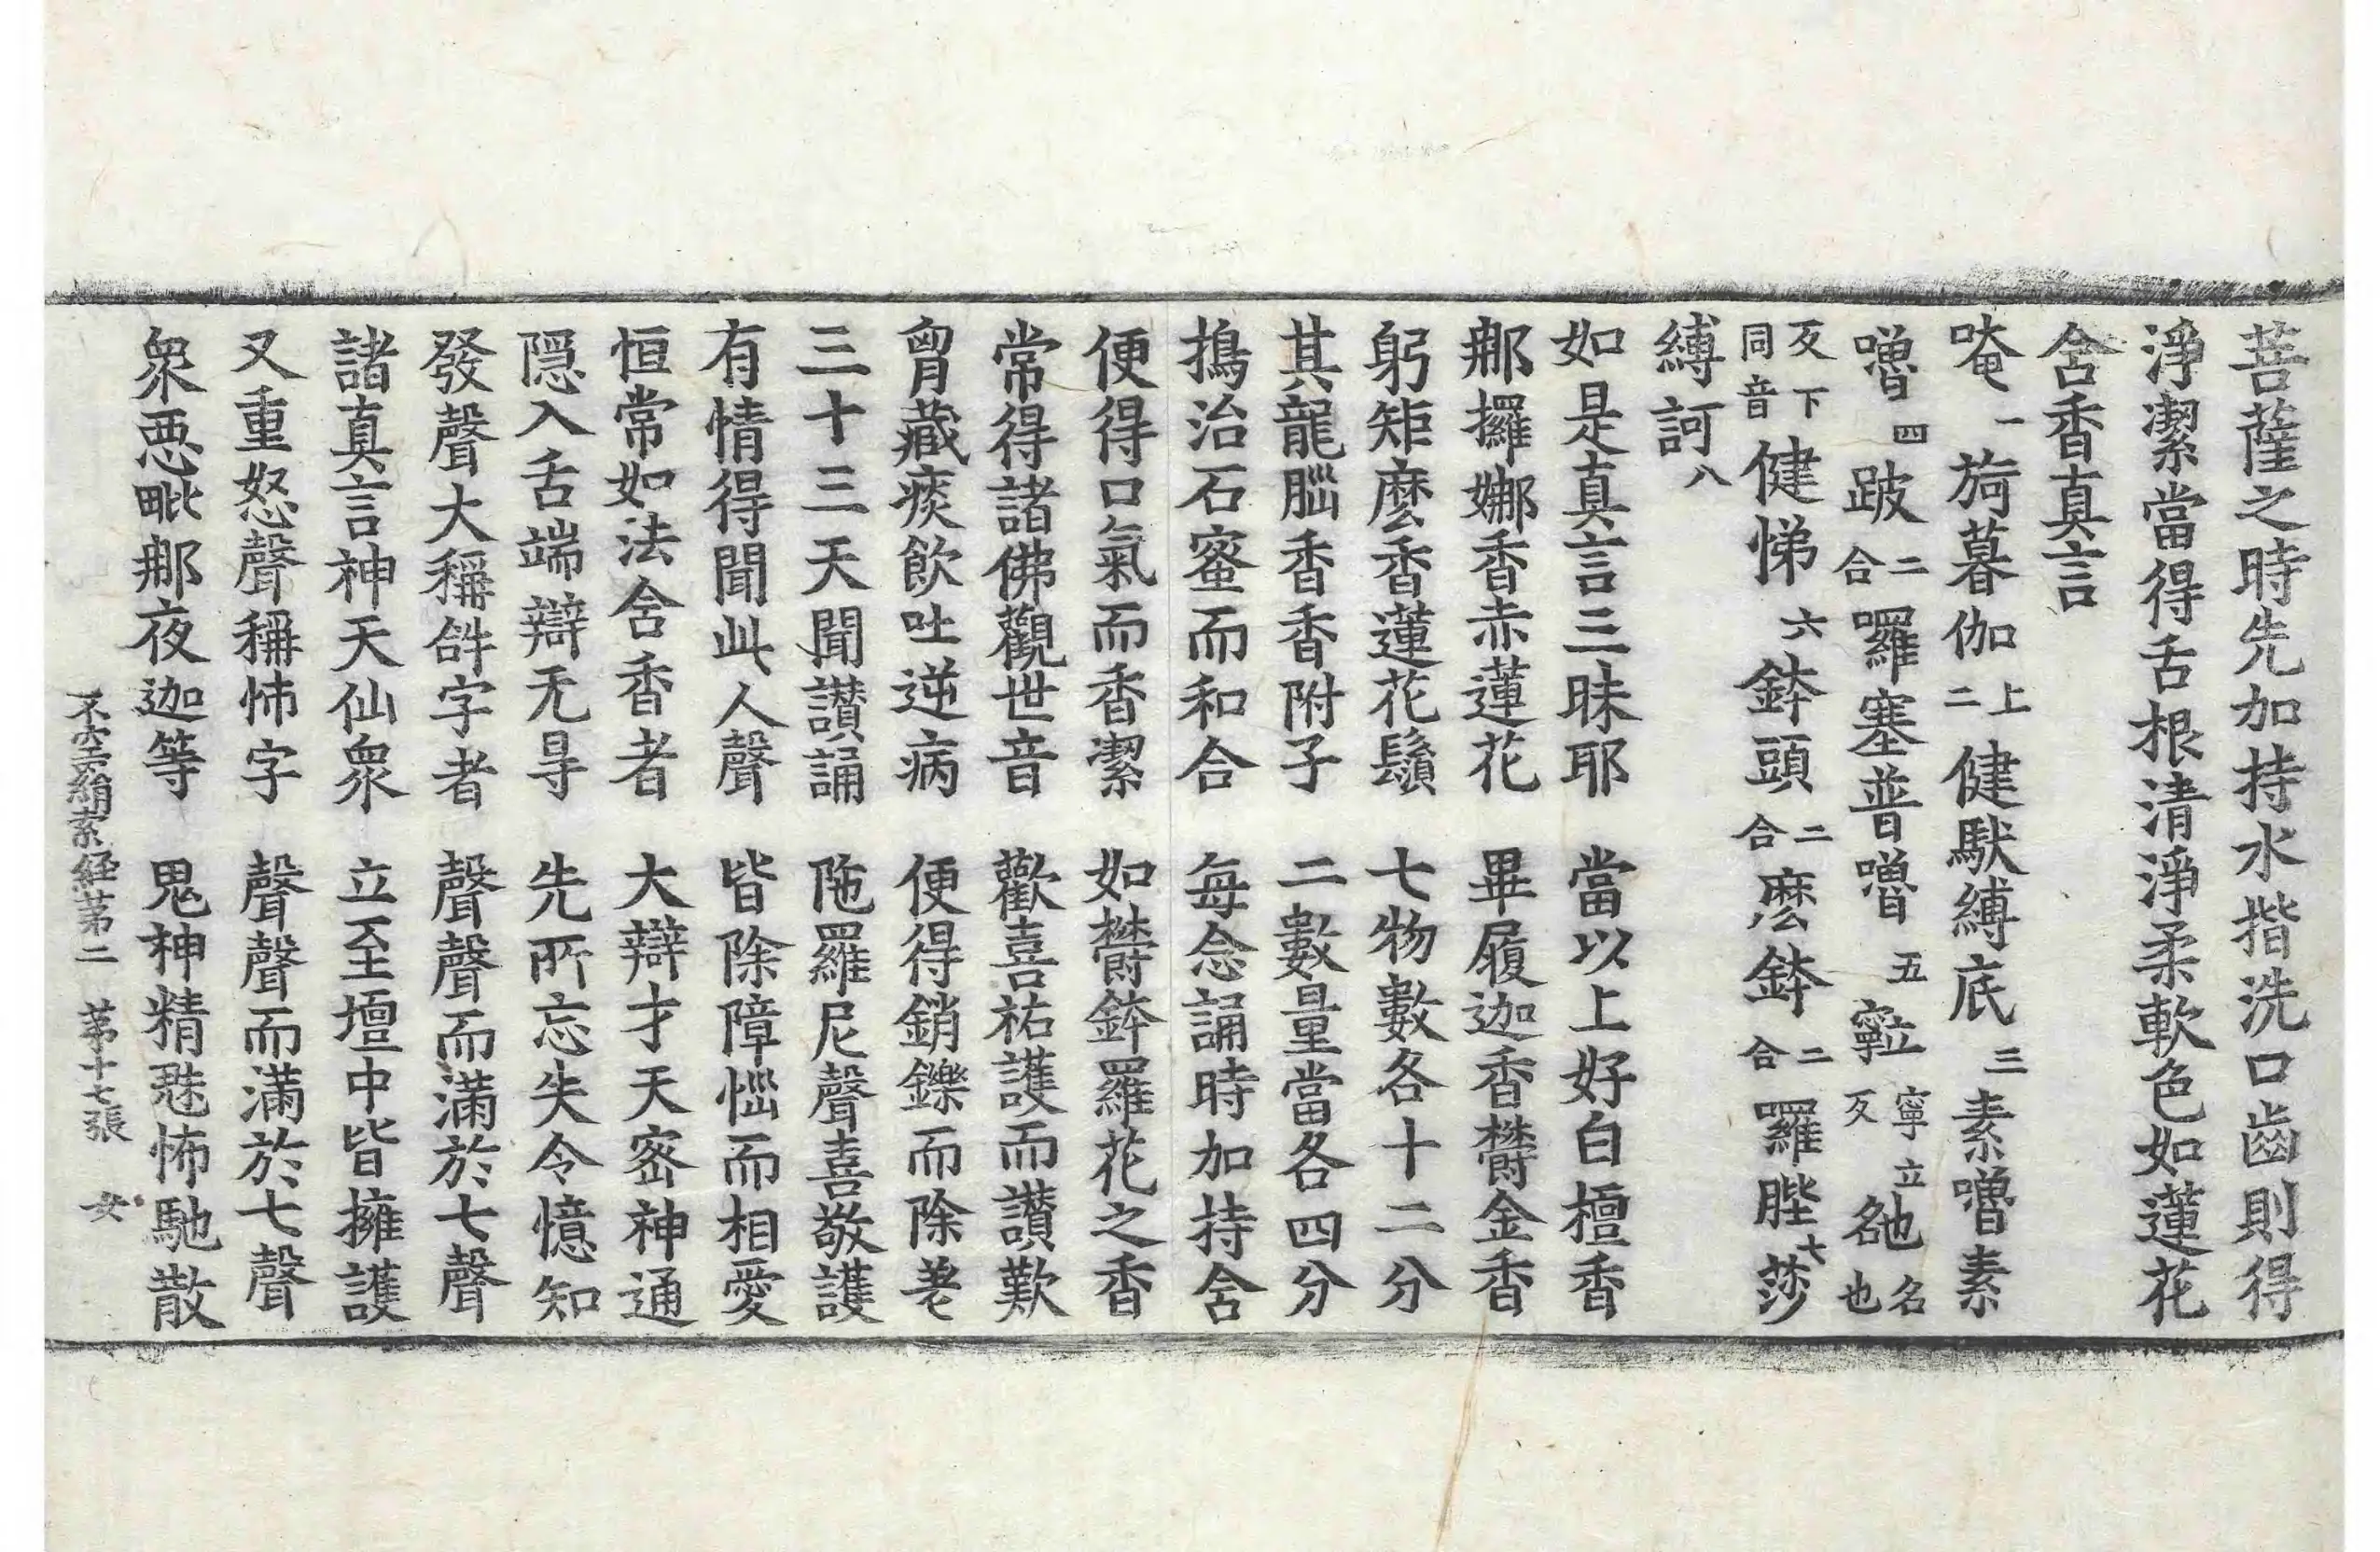 菩薩之時先加持水揩洗口齒則得
淨潔當得舌根清淨柔軟色如蓮花
含香真言
唵一旖暮伽上二健馱縛底三素嚕素
嚕四跛二合囉塞普嚕五寧立反䶔名也
反下同音健悌六鉢頭二合麽鉢二合囉䏶七莎
縛訶八
如是真言三昧耶　當以上好白檀香
那攞娜香赤蓮花　畢履迦香欝金香
躬矩麽香蓮花鬚　七物數各十二分
其龍腦香香附子　二數量當各四分
擣治石蜜而和合　每念誦時加持含
便得口氣而香潔　如欝鉢羅花之香
常得諸佛觀世音　歡喜祐護而讃歎
胷藏痰飲吐逆病　便得銷鑠而除差
三十三天聞讃誦　陁羅尼聲喜敬護
有情得聞此人聲　皆除障惱而相愛
恒常如法含香者　大辯才天密神通
隱入舌端辯无㝵　先所忘失令憶知
發聲大稱𤙖字者　聲聲而滿於七聲
諸真言神天仙衆　立至壇中皆擁護
又重怒聲稱怖字　聲聲而滿於七聲
衆惡毗那夜迦等　鬼神精魅怖馳散
不空羂索経苐二　苐十七張　女